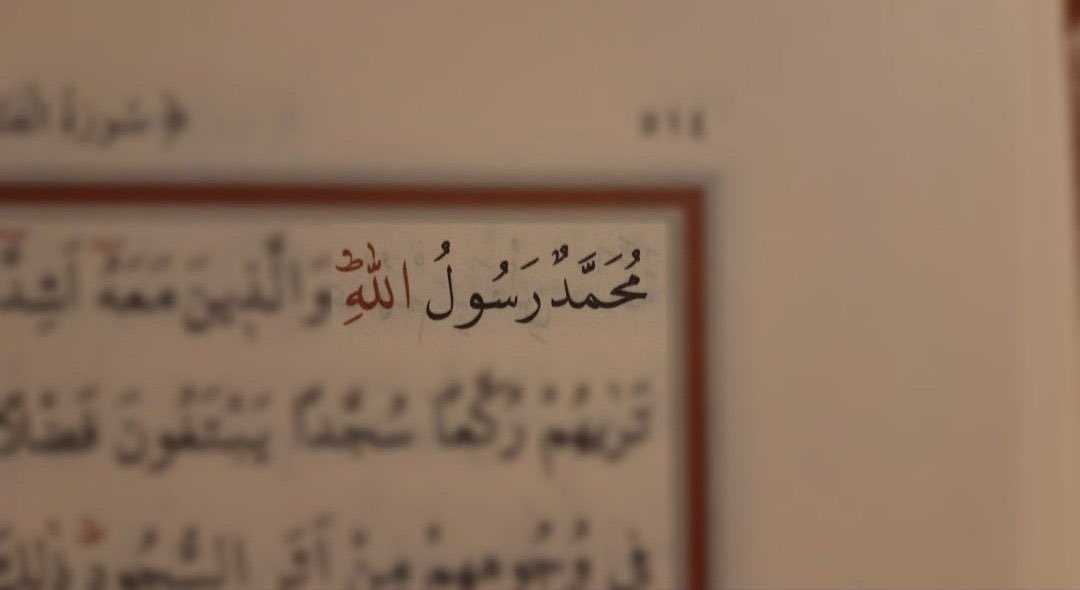 ٥١٤ ﴿سورة الف
مُحَمَّدٌ رَسُولُ اللّٰهِۜ وَالَّذ۪ينَ مَعَهُٓ اَشِدَّٓ
تَرٰيهُمْ رُكَّعًا سُجَّدًا يَبْتَغُونَ فَضْلًا
ف۪ي وُجُوهِهِمْ مِنْ اَثَرِ السُّجُودِۜ ذٰلِكَ